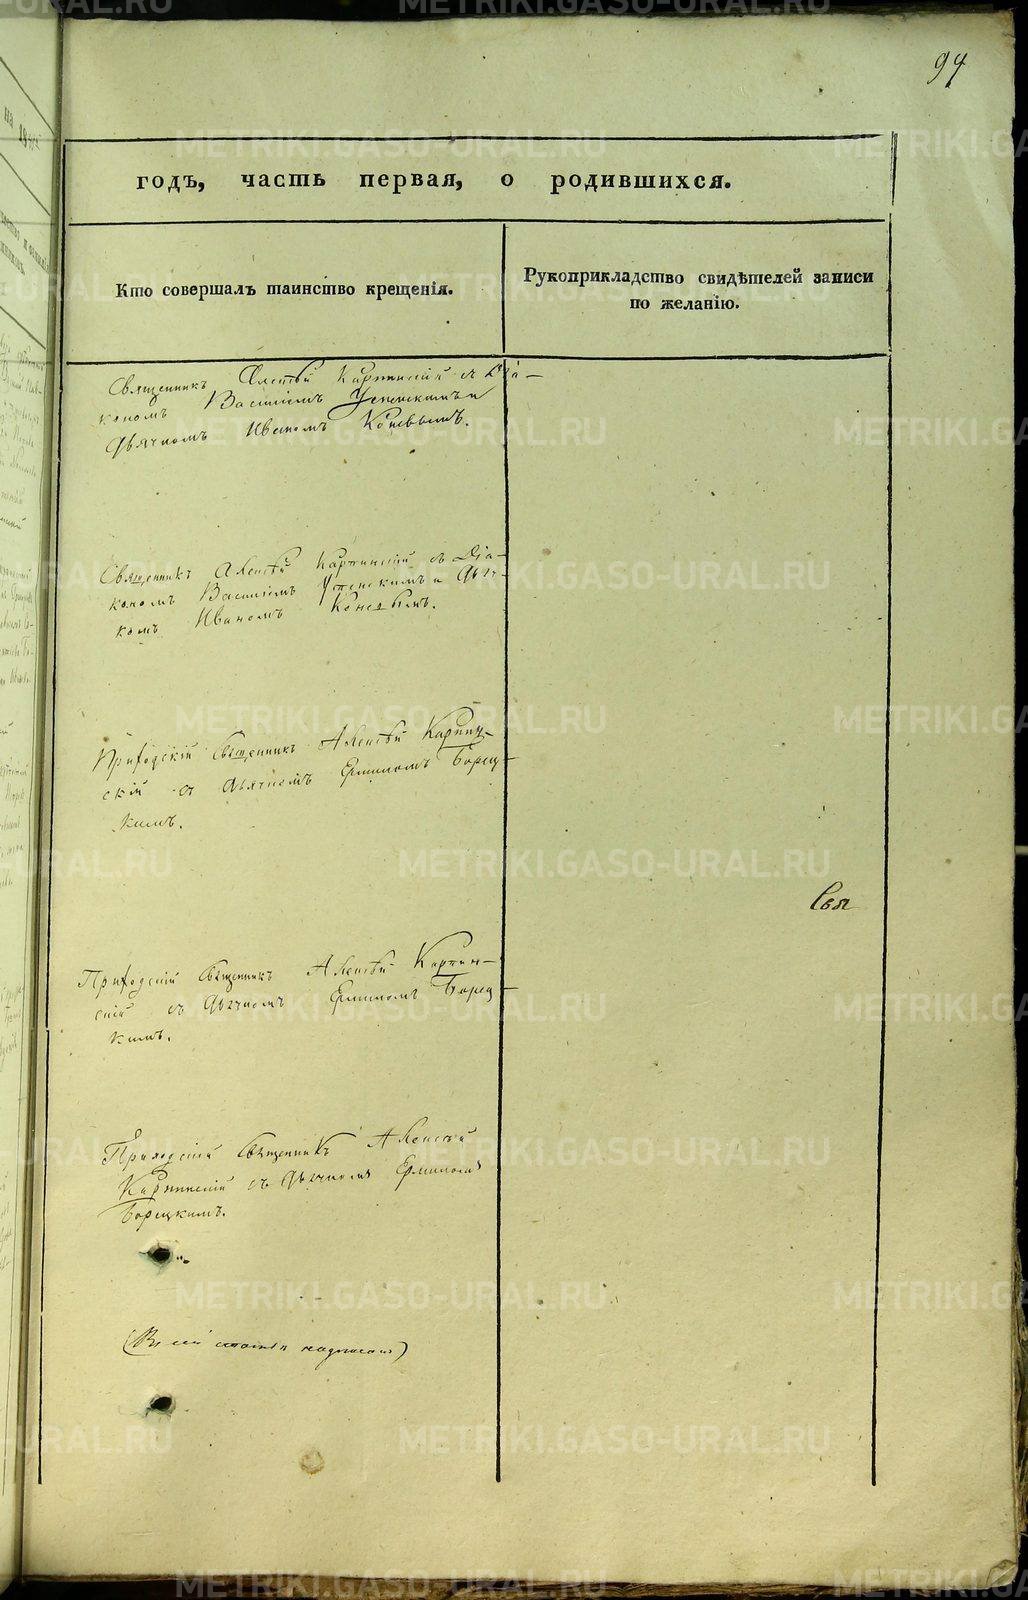 94
годъ, часть первая, о родившихся.
Кто совершалъ таинство крещенія.
Рукоприкладство свидѣтелей записи
по желанію.
Священникъ Алексѣй Карпинскій съ Діа-
кономъ Василіемъ Успенскимъ и
Дьячкомъ Иваномъ
Священникъ Алексѣй Карпинскій съ Діа-
кономъ Василіемъ Успенскимъ и Дьяч-
комъ Иваномъ
Приходскій Священникъ Алексѣй Карпин-
скій съ Дьячкомъ Ермиломъ Борец-
кимъ.
Свя
Приходскій Священникъ Алексѣй Карпин-
скій съ Дьячкомъ Ермиломъ Борец-
кимъ.
Приходскій Священникъ Алексѣй
Карпинскій съ Дьячкомъ Ермиломъ
Борецкимъ.
METRIKI.GASO-URAL.RU